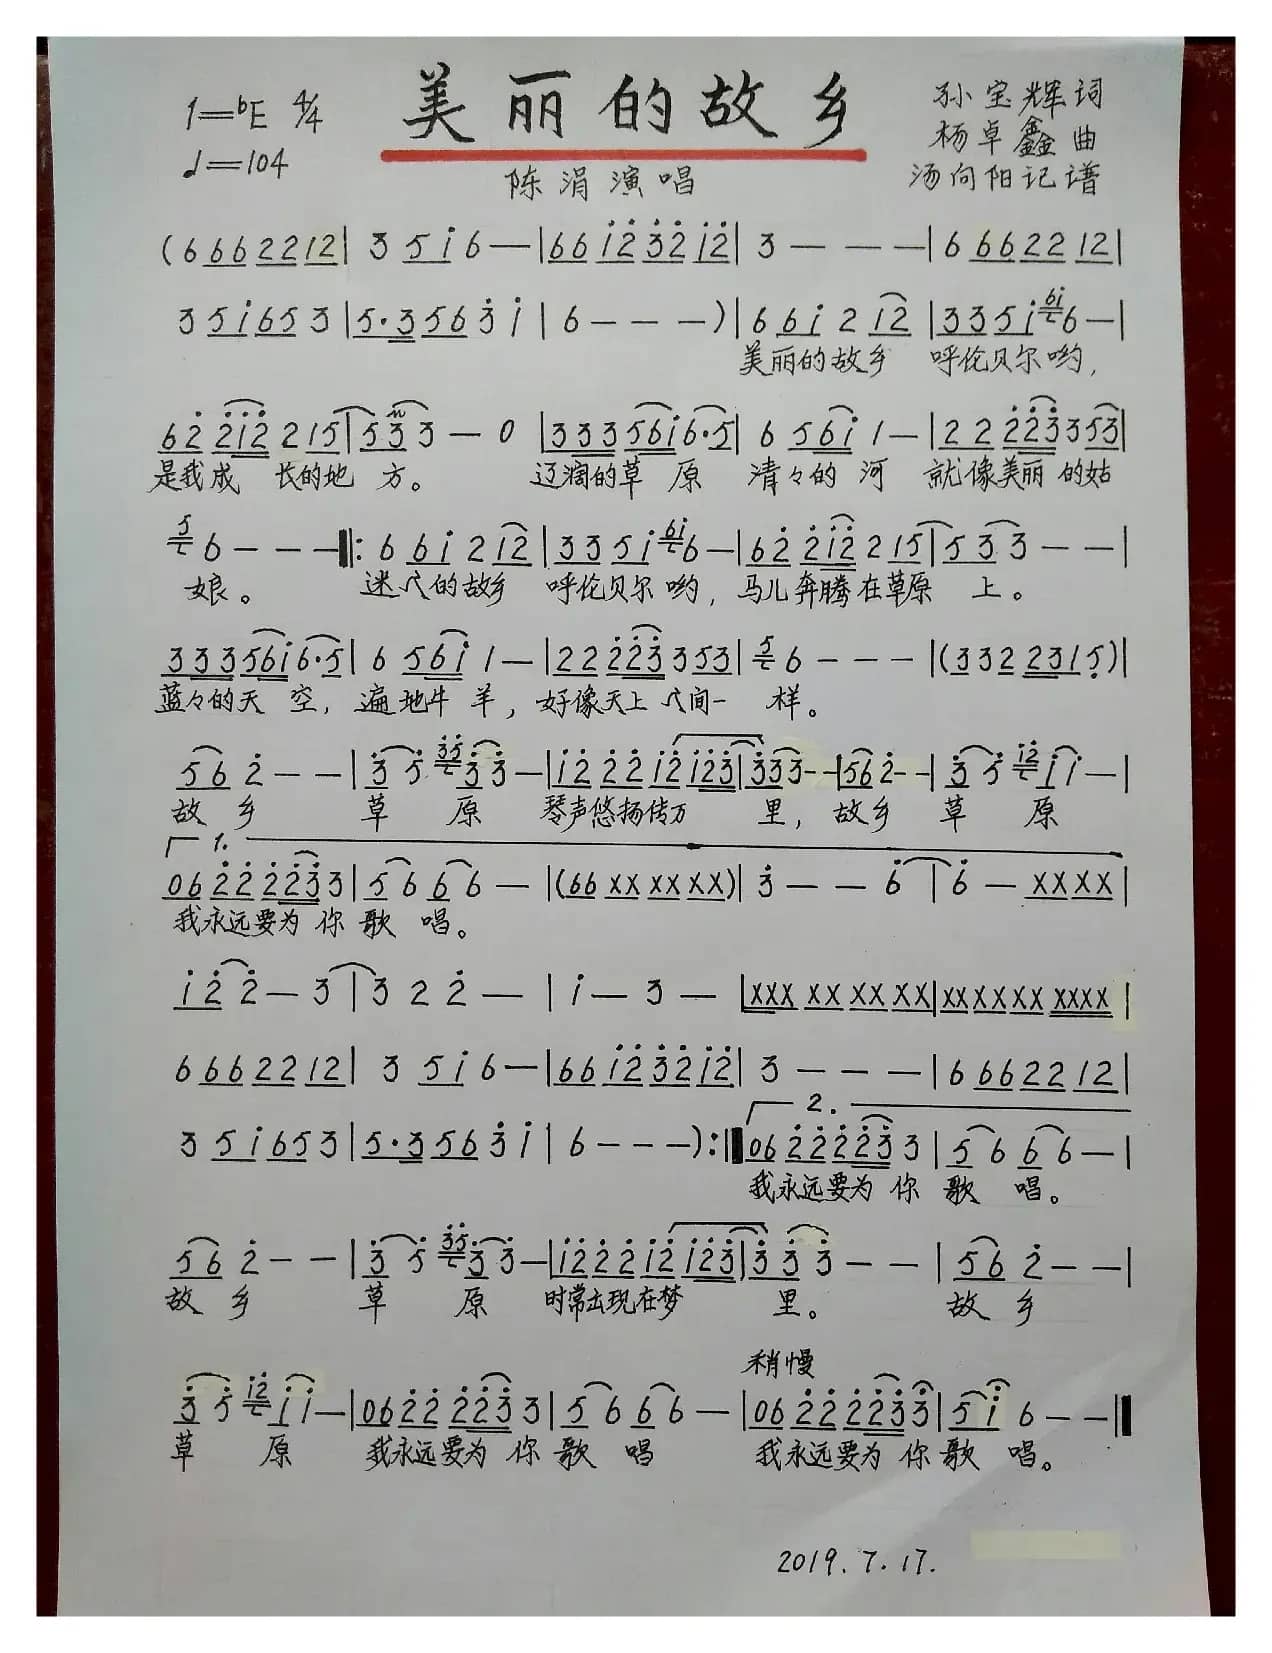 美丽的故乡
1=♭E 4/4
♩=104
陈涓演唱
孙宝辉词
杨卓鑫曲
汤向阳记谱
(6 6 6 2 2 1 2 | 3 5 i 6 — | 6 6 i 2 3 2 i 2 | 3 — — — | 6 6 6 2 2 1 2 |
3 5 i 6 5 3 | 5·3 5 6 3 i | 6 — — — ) | 6 6 i 2 i 2 | 3 3 5 i 6i 6 — |
美丽的故乡 呼伦贝尔哟,
6 2 2 i 2 2 1 5 | 5 3 3 — 0 | 3 3 3 5 6 i 6·5 | 6 5 6 i 1 — | 2 2 2 2 3 3 5 3 |
是我成长的地方。 辽阔的草原 清々的河 就像美丽的姑
5 6 — — — ‖: 6 6 i 2 i 2 | 3 3 5 i 6i 6 — | 6 2 2 i 2 2 1 5 | 5 3 3 — — |
娘。 迷人的故乡 呼伦贝尔哟, 马儿奔腾在草原上。
3 3 3 5 6 i 6·5 | 6 5 6 i 1 — | 2 2 2 2 2 3 3 5 3 | 5 6 — — — | (3 3 2 2 3 1 5) |
蓝々的天空, 遍地牛羊, 好像天上人间一样。
5 6 2 — — | 3 5 35 3 3 — | i 2 2 2 i 2 i 2 3 | 3 3 3 — — | 5 6 2 — — | 3 5 i2 i i — |
故乡 草原 琴声悠扬传万里, 故乡 草原
1.
0 6 2 2 2 2 3 3 | 5 6 6 6 — | (6 6 X X X X X X) | 3 — — 6 | 6 — X X X X |
我永远要为你歌唱。
i 2 2 — 3 | 3 2 2 — | i — 3 — | X X X X X X X X X | X X X X X X X X X X |
6 6 6 2 2 1 2 | 3 5 i 6 — | 6 6 i 2 3 2 i 2 | 3 — — — | 6 6 6 2 2 1 2 |
2.
3 5 i 6 5 3 | 5·3 5 6 3 i | 6 — — — ) :‖ 0 6 2 2 2 2 3 3 | 5 6 6 6 — |
我永远要为你歌唱。
5 6 2 — — | 3 5 35 3 3 — | i 2 2 2 i 2 i 2 3 | 3 3 3 — — | 5 6 2 — — |
故乡 草原 时常出现在梦里。 故乡
稍慢
3 5 i2 i i — | 0 6 2 2 2 2 3 3 | 5 6 6 6 — | 0 6 2 2 2 2 3 3 | 5 i 6 — — ‖
草原 我永远要为你歌唱 我永远要为你歌唱。
2019.7.17.